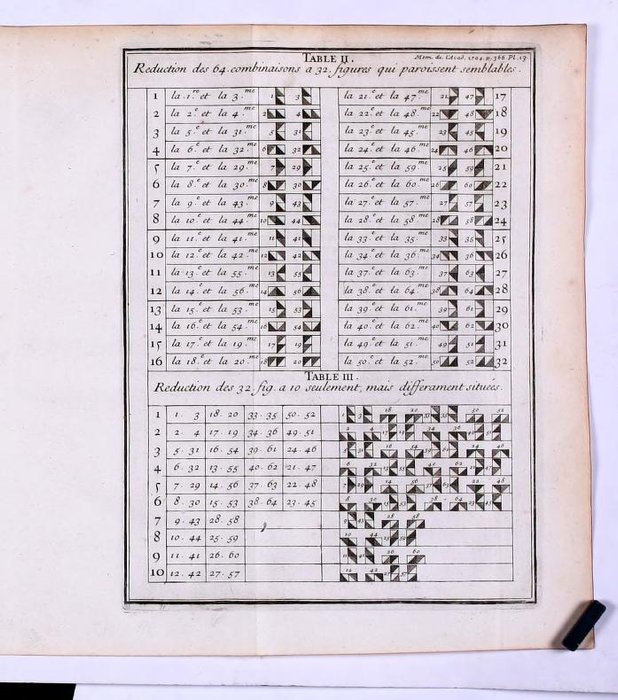 TABLE II.
Mem. de l'Acad. 1704. p. 366. Pl. 13.
Reduction des 64. combinaisons a 32. figures qui paroissent semblables.
1 la 1.re et la 3.me 1 3
2 la 2.e et la 4.me 2 4
3 la 5.e et la 31.me 5 31
4 la 6.e et la 32.me 6 32
5 la 7.e et la 29.me 7 29
6 la 8.e et la 30.me 8 30
7 la 9.e et la 43.me 9 43
8 la 10.e et la 44.me 10 44
9 la 11.e et la 41.me 11 41
10 la 12.e et la 42.me 12 42
11 la 13.e et la 55.me 13 55
12 la 14.e et la 56.me 14 56
13 la 15.e et la 53.me 15 53
14 la 16.e et la 54.me 16 54
15 la 17.e et la 19.me 17 19
16 la 18.e et la 20.me 18 20
la 21.e et la 47.me 21 47 17
la 22.e et la 48.me 22 48 18
la 23.e et la 45.me 23 45 19
la 24.e et la 46.me 24 46 20
la 25.e et la 59.me 25 59 21
la 26.e et la 60.me 26 60 22
la 27.e et la 57.me 27 57 23
la 28.e et la 58.me 28 58 24
la 33.e et la 35.me 33 35 25
la 34.e et la 36.me 34 36 26
la 37.e et la 63.me 37 63 27
la 38.e et la 64.me 38 64 28
la 39.e et la 61.me 39 61 29
la 40.e et la 62.me 40 62 30
la 49.e et la 51.me 49 51 31
la 50.e et la 52.me 50 52 32
TABLE III.
Reduction des 32. fig. a 10 seulement, mais differament situées.
1 1. 3 18. 20 33. 35 50. 52
2 2. 4 17. 19 34. 36 49. 51
3 5. 31 16. 54 39. 61 24. 46
4 6. 32 13. 55 40. 62 21. 47
5 7. 29 14. 56 37. 63 22. 48
6 8. 30 15. 53 38. 64 23. 45
7 9. 43 28. 58
8 10. 44 25. 59
9 11. 41 26. 60
10 12. 42 27. 57